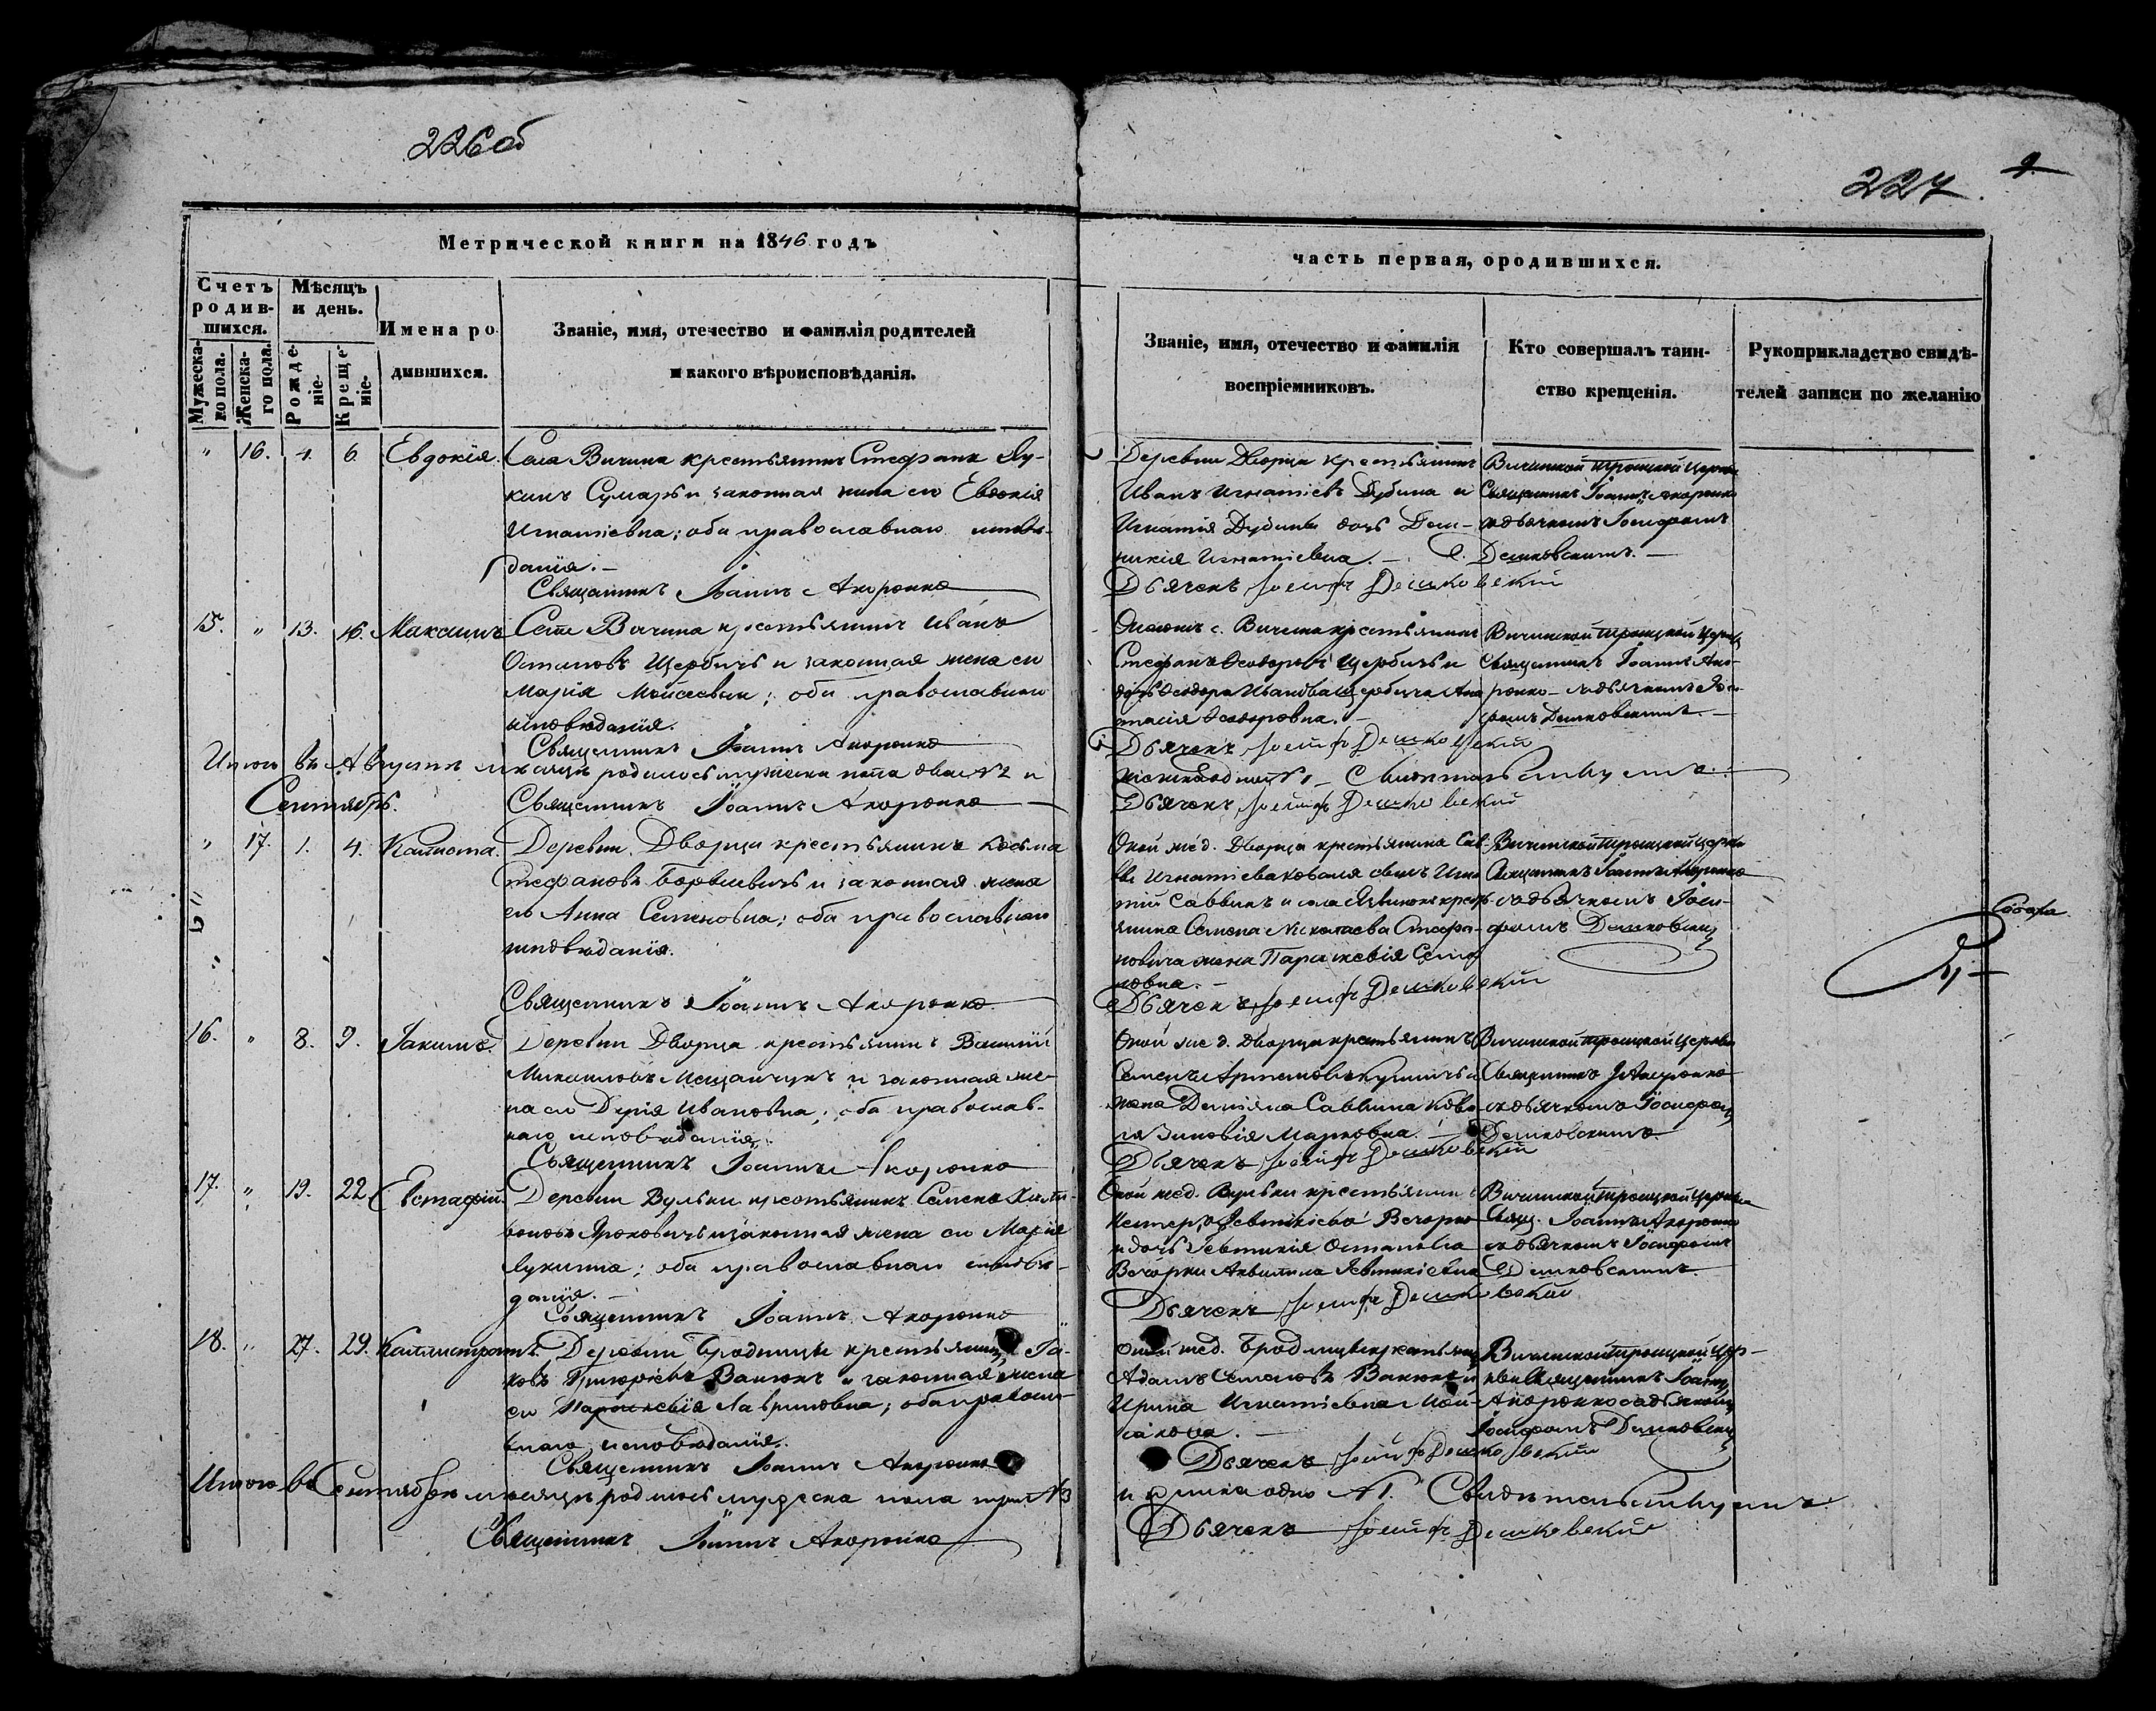 226 об
227.
9
Метрической книги на 1846 годъ
часть первая, ородившихся.
Счетъ родив-шихся.
Мужеска-го пола.
Женска-го пола.
Мѣсяцъ и день.
Рожде-ніе.
Креще-ніе.
Имена ро
дившихся.
Званіе, имя, отечество и фамилія родителей
и какого вѣроисповѣданія.
Званіе, имя, отечество и фамилія
воспріемниковъ.
Кто совершалъ таин-
ство крещенія.
Рукоприкладство свидѣ-
телей записи по желанію
" 16. 4. 6 Евдокія. Села Вичина крестьянинъ Стефанъ Лу-
кинъ Сумаръ и законная жена его Евдокія
Игнатіевна; оба православнаго исповѣ-
данія.-
Священникъ Іоаннъ Акоронко
Деревни Дворца крестьянинъ
Иванъ Игнатіевъ Дубина и
Игнатія Дубины дочь Дом-
никія Игнатіевна.-
Дьячекъ Іосифъ Дешковскій
Вичинской Троицкой Церкви
Священникъ Іоаннъ Акоронко
съ дьячкомъ Іосифомъ
Дешковскимъ.-
15. " 13. 16. Максимъ Села Вичина крестьянинъ Иванъ
Остаповъ Щербичъ и законная жена его
Марія Моисеевна; оба православнаго
исповѣданія.
Священникъ Іоаннъ Акоронко
с. Вичина крестьянинъ
Стефанъ Ѳеодоровъ Щербичъ и
дочь Ѳеодора Иванова Щербича Ана
стасія Ѳеодоровна.-
Дьячекъ Іосифъ Дешковскій
Вичинской Троицкой Церкви
Священникъ Іоаннъ Ако-
ронко съ дьячкомъ Іоси-
фомъ Дешковскимъ.-
Итого въ Августѣ мѣсяцѣ родилось мужеска пола два №2 и
женска одна №1 - Свидѣтельствуемъ:
Священникъ Іоаннъ Акоронко
Дьячекъ Іосифъ Дешковскій
Сентябрь.
" 17. 1. 4. Деревни Дворца крестьянинъ Косьма
Стефановъ и законная жена
его Анна Семеновна; оба православнаго
исповѣданія.
Священникъ Іоаннъ Акоронко
Оной же д. Дворца крестьянина Сав-
вы Игнатіева Коваля сынъ Игна
тій Саввинъ и села крестья-
нина Семена Николаева Стефа-
новича жена Параскевія Семе
новна.-
Дьячекъ Іосифъ Дешковскій
Вичинской Троицкой Церкви
Священникъ Іоаннъ Акоронко
съ дьячкомъ Іоси-
фомъ Дешковскимъ
16. " 8. 9. Іакимъ. Деревни Дворца крестьянинъ Василій
Михаиловъ Мещанчукъ и законная же-
на его Дарія Ивановна; оба православ-
наго исповѣданія.
Священникъ Іоаннъ Акоронко
Оной же д. Дворца крестьянинъ
Семенъ Артемовъ и
жена Демьяна Саввина Кова
ля Зиновія Марковна.-
Дьячекъ Іосифъ Дешковскій
Вичинской Троицкой Церкви
Священникъ І. Акоронко
съ дьячкомъ Іосифомъ
Дешковскимъ.
17. " 19. 22 Евстафій. Деревни Вульки крестьянинъ Семенъ
и законная жена его Марія
Лукинна; оба православнаго исповѣ-
данія.-
Священникъ Іоаннъ Акоронко
Оной же д. Вульки крестьянинъ
Нестеръ Евтихіевъ Вечорко
и дочь Евтихія Остапова
Вечорки Акилина Евтихіевна
Дьячекъ Іосифъ Дешковскій
Вичинской Троицкой Церкви
Свящ. Іоаннъ Акоронко
съ дьячкомъ Іосифомъ
Дешковскимъ.
18. " 27. 29. Каллистратъ. Деревни Бродницы крестьянинъ Іа-
ковъ Григоріевъ Ванюкъ и законная жена
его Параскевія Лавриновна; оба правосла-
внаго исповѣданія.
Священникъ Іоаннъ Акоронко
Оной же д. Бродницы крестьянинъ
Адамъ Семеновъ Ванюкъ и
Ирина Игнатіевна
Дьячекъ Іосифъ Дешковскій
Вичинской Троицкой Цер-
кви Священникъ Іоаннъ
Акоронко съ дьячкомъ
Іосифомъ Дешковскимъ
Итого въ Сентябрѣ мѣсяцѣ родилось мужеска пола три №3
и женска одно №1. Свидѣтельствуемъ:
Священникъ Іоаннъ Акоронко
Дьячекъ Іосифъ Дешковскій